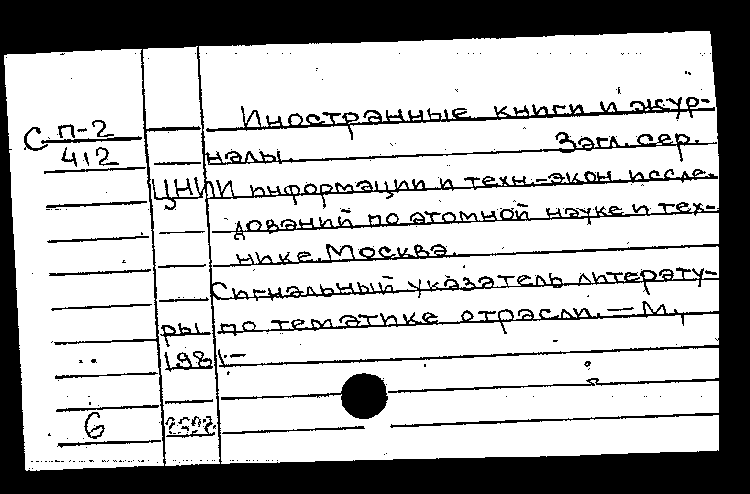 Иностранные книги и жур-
С П-2
412
налы. Загл. сер.
ЦНИИ информации и техн.-экон. иссле-
дований по атомной науке и тех-
нике. Москва.
Сигнальный указатель литерату-
ры по тематике отрасли. — М.,
1981.—
6